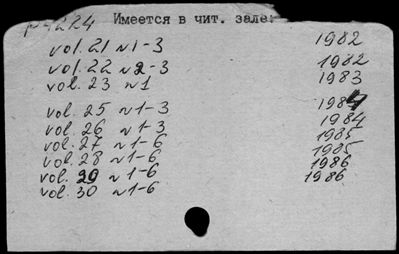 р-4224 Имеется в чит. зале:
vol. 21 N1-3 1982
vol. 22 N2-3 1982
vol. 23 N1 1983
vol. 25 N1-3 1984
vol. 26 N1-3 1984
vol. 27 N1-6 1985
vol. 28 N1-6 1985
vol. 29 N1-6 1986
vol. 30 N1-6 1986